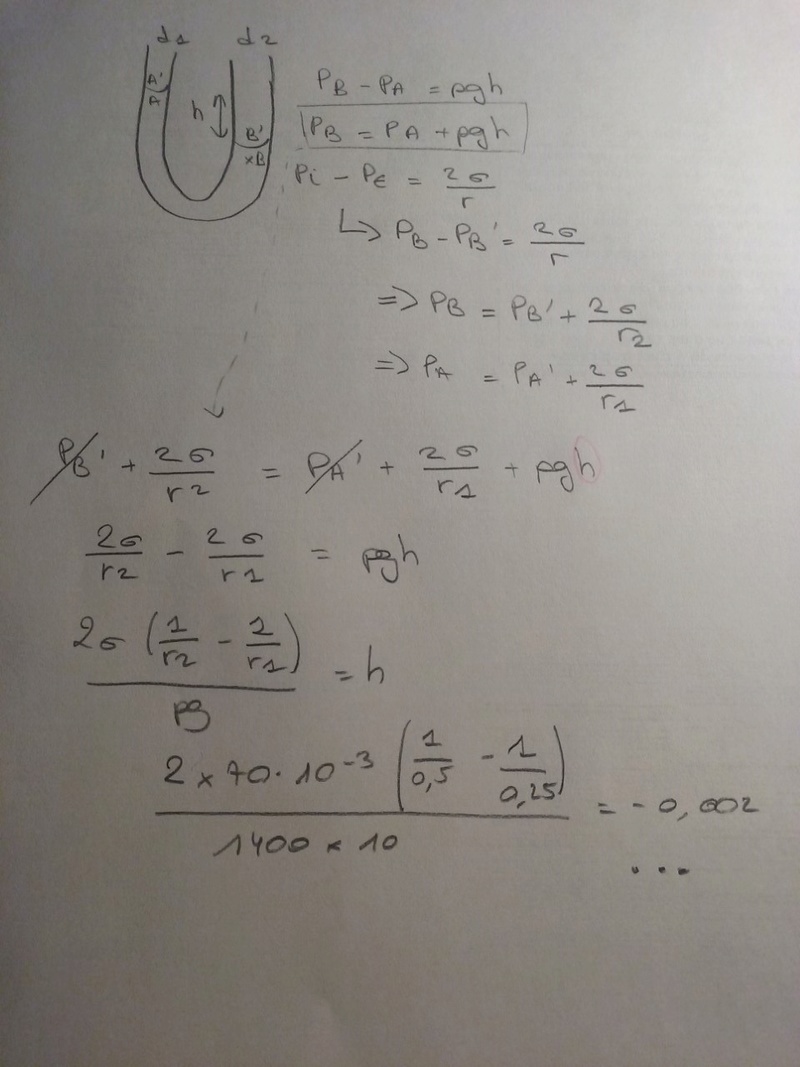 d1 d2
A'
A
h
B'
×B
PB - PA = ρgh
PB = PA + ρgh
Pi - PE = 2σ/r
↳ PB - PB' = 2σ/r
=> PB = PB' + 2σ/r2
=> PA = PA' + 2σ/r1
PB' + 2σ/r2 = PA' + 2σ/r1 + ρgh
2σ/r2 - 2σ/r1 = ρgh
2σ (1/r2 - 1/r1) / ρg = h
2 × 70·10⁻³ (1/0,5 - 1/0,25) / 1400 × 10 = - 0,002
...